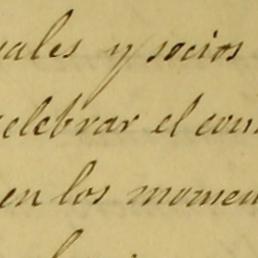 uales y socios
celebrar el con
en los momen